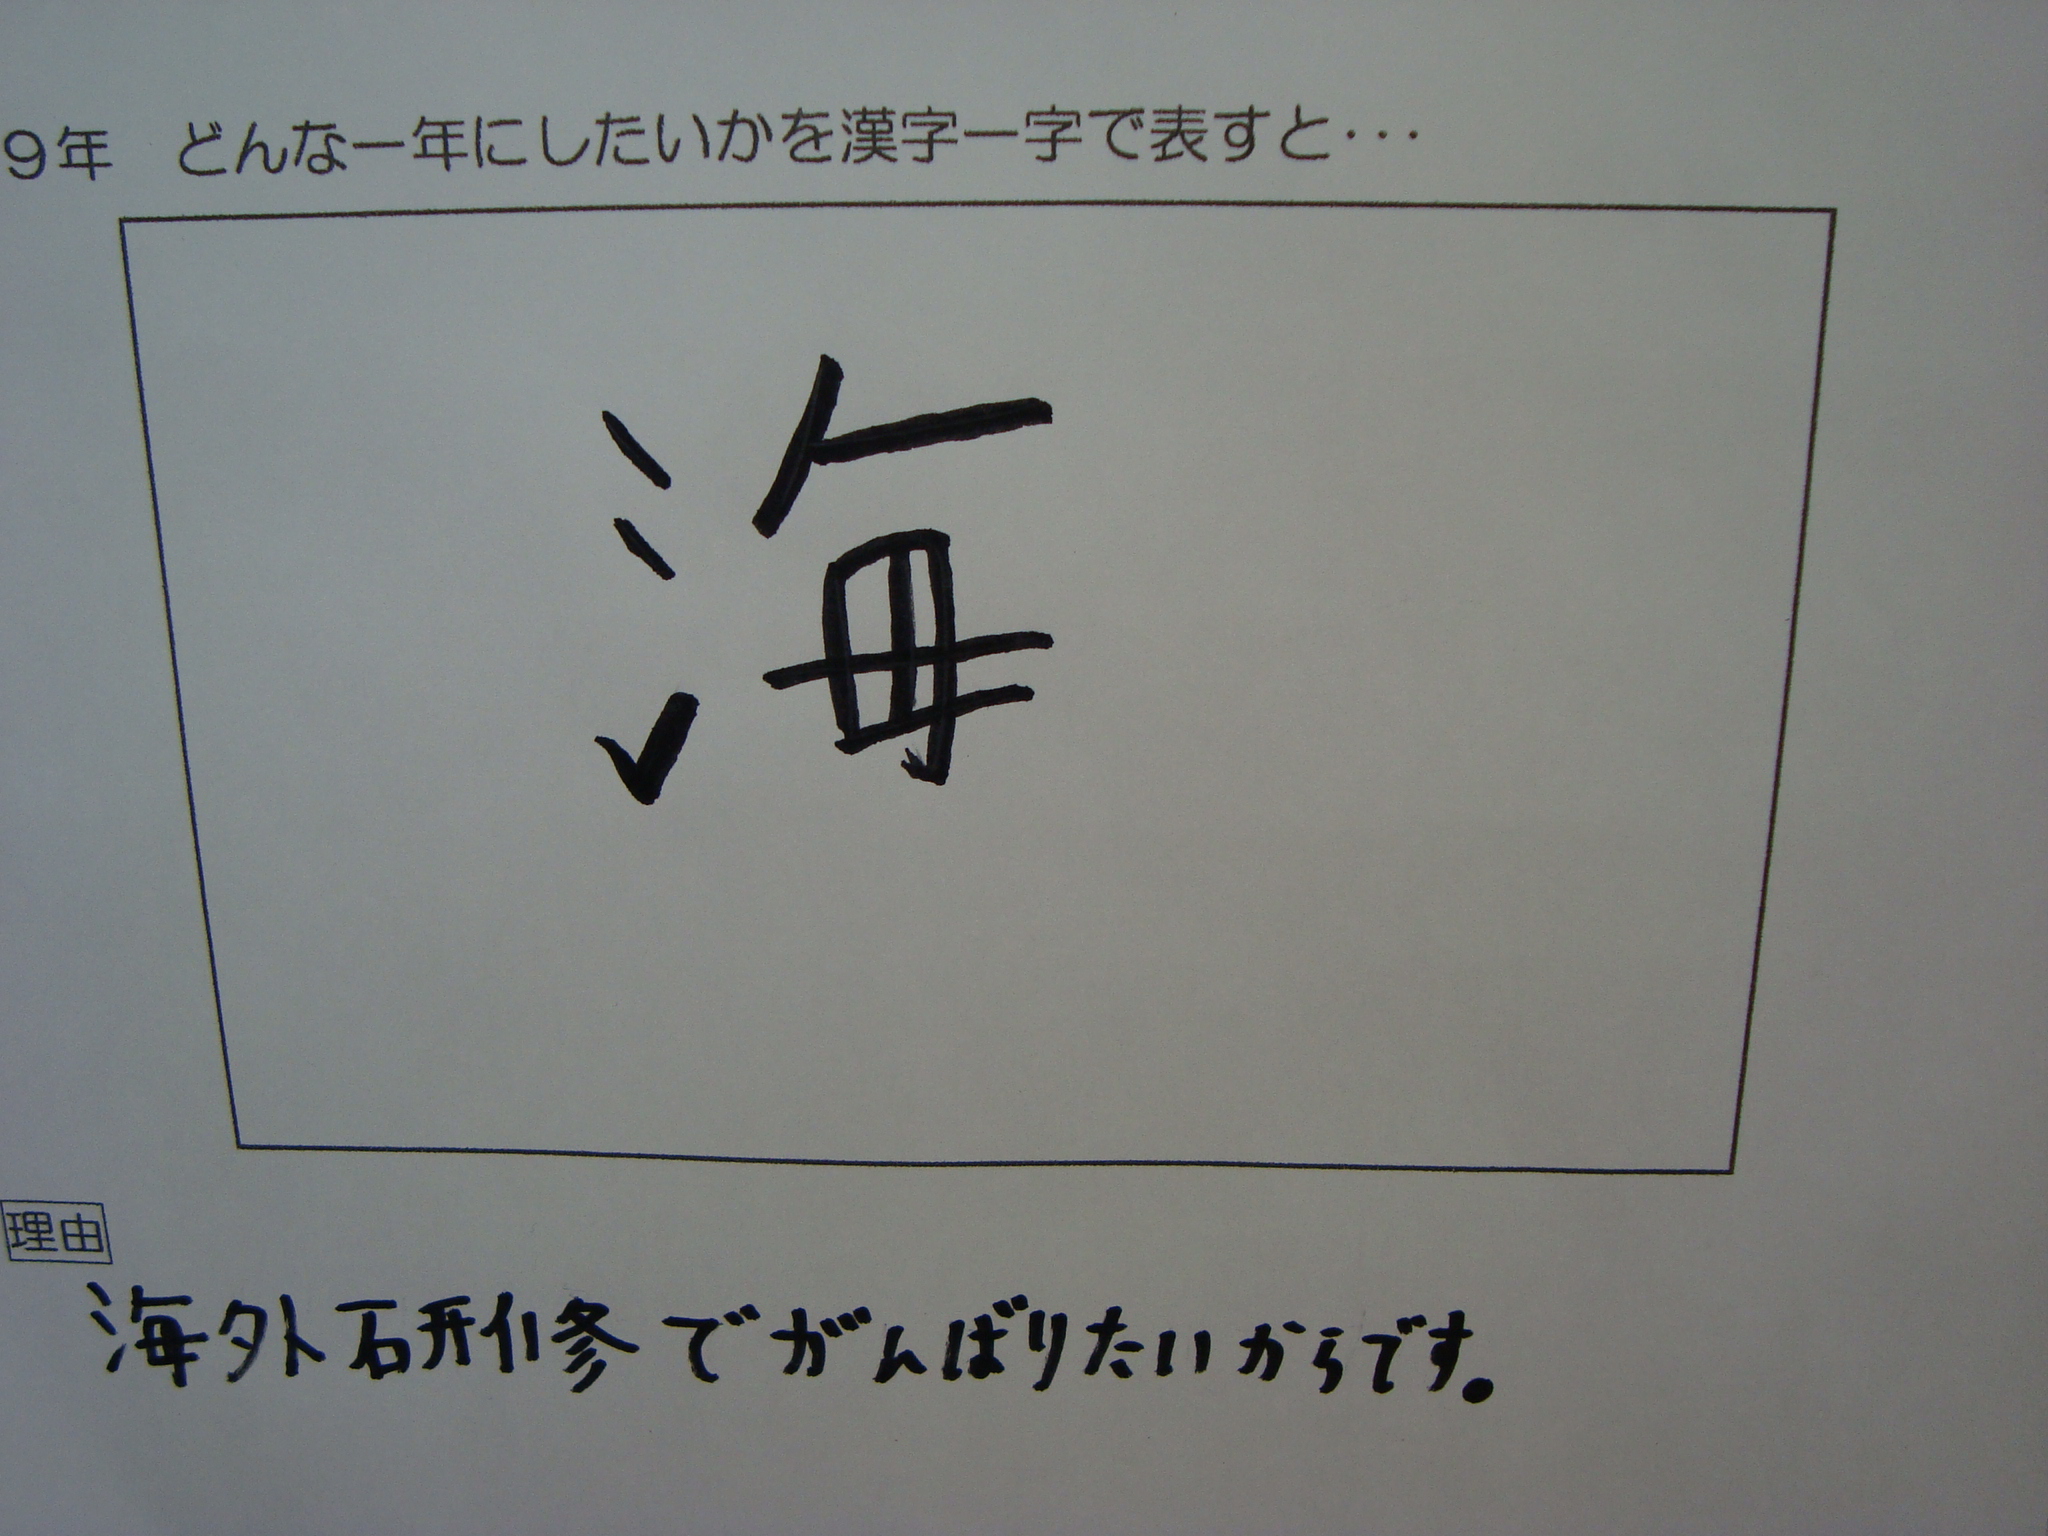 9年 どんな一年にしたいかを漢字一字で表すと・・・
海
理由
海外研修でがんばりたいからです。